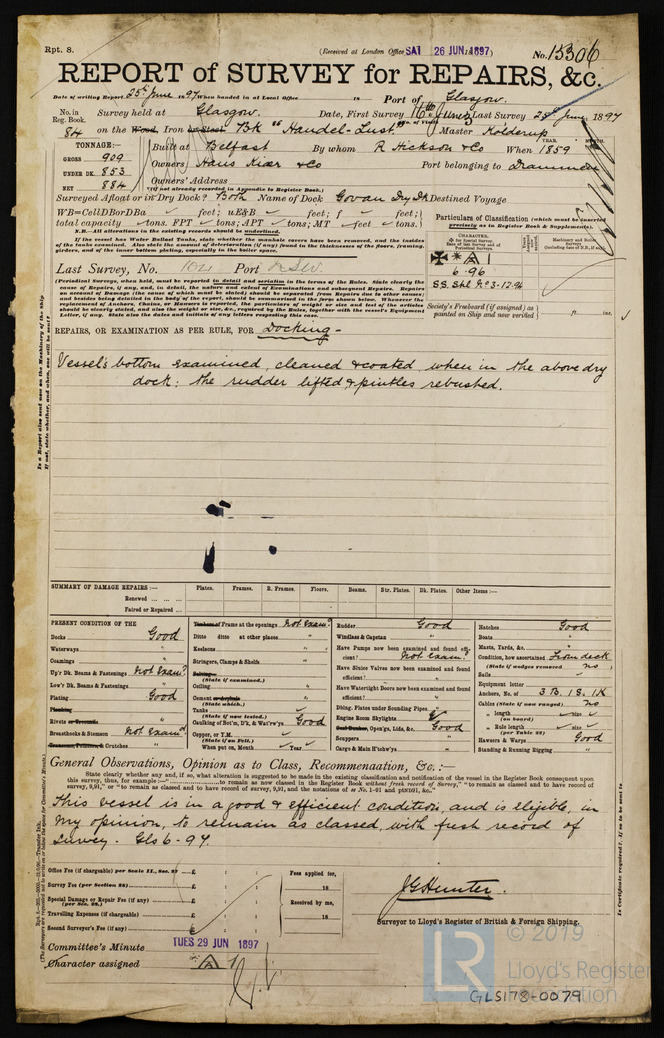 Rpt. 8.
(Received at London Office SAT 26 JUN 1897)
No. 15306
REPORT of SURVEY for REPAIRS, &c.
Date of writing Report 25th June 1897 When handed in at Local Office 18 Port of Glasgow.
No. in Reg. Book. Survey held at Glasgow. Date, First Survey 16th June Last Survey 25th June 1897
84 on the Wood, Iron or Steel Bk "Haudel-Lust" Master Kolderup
TONNAGE:— Built at Belfast By whom R Hickson & Co When 1859
GROSS 909 Owners Hans Kiær & Co Port belonging to Drammen
UNDER DK. 853 Owners' Address
NET 884 (If not already recorded in Appendix to Register Book.)
Surveyed Afloat or in Dry Dock? Both Name of Dock Govan Dry Dk Destined Voyage
WB=CellDBorDBa feet; uE&B feet; f feet;
total capacity tons. FPT tons; APT tons; MT feet tons.
N.B.—All alterations in the existing records should be underlined.
If the vessel has Water Ballast Tanks, state whether the manhole covers have been removed, and the insides of the tanks examined. Also state the amount of deterioration (if any) found in the thicknesses of the floors, framing, girders, and of the inner bottom plating, especially in the boiler room.
Particulars of Classification (which must be inserted precisely as in Register Book & Supplements).
CHARACTER.
A 1
6-96
Last Survey, No. Port
(Periodical Surveys, when held, must be reported in detail and seriatim in the terms of the Rules. State clearly the cause of Repairs, if any, and, in detail, the nature and extent of Examinations and subsequent Repairs. Repairs on account of Damage (the cause of which must be stated) should be separated from Repairs due to other causes; and besides being detailed in the body of the report, should be summarised in the form shown below. Whenever the replacement of Anchors, Chains, or Hawsers is reported, the particulars of weight or size and test of the articles should be clearly stated, and also the weight or size, &c., required by the Rules, together with the vessel's Equipment Letter, if any. State also the dates and initials of any letters respecting this case.
Society's Freeboard (if assigned) as painted on Ship and now verified ft. ins.
REPAIRS, OR EXAMINATION AS PER RULE, FOR Docking -
Vessel's bottom examined, cleaned & coated, when in the above dry
dock: the rudder lifted & pintles rebushed.
SUMMARY OF DAMAGE REPAIRS:— Plates. Frames. R. Frames. Floors. Beams. Str. Plates. Dk. Plates. Other Items:—
Renewed
Faired or Repaired
PRESENT CONDITION OF THE
Decks Good
Waterways "
Coamings "
Up'r Dk. Beams & Fastenings Not Examd
Low'r Dk. Beams & Fastenings "
Plating Good
Planking
Rivets or Treenails "
Breasthooks & Stemson Not Examd
Transoms, Pointers, & Crutches "
Timbers or Frame at the openings Not Examd
Ditto ditto at other places "
Keelsons "
Stringers, Clamps & Shelfs "
Salting
(State if examined.)
Ceiling "
Cement or Asphalte
(State which.)
Tanks
(State if now tested.)
Caulking of Bot'm, D'k, & Wat'rw'ys Good
Copper, or Y.M.
(State if on Felt.)
When put on, Month Year
Rudder Good
Windlass & Capstan "
Have Pumps now been examined and found efficient? Not Examd
Have Sluice Valves now been examined and found efficient?
Have Watertight Doors now been examined and found efficient?
Dblng. Plates under Sounding Pipes
Engine Room Skylights
Coal Bunker, Open'gs, Lids, &c. Good
Scuppers "
Cargo & Main H'tchw'ys "
Hatches Good
Boats "
Masts, Yards, &c. "
Condition, how ascertained From deck
(State if wedges removed no)
Sails
Equipment letter
Anchors, No. of 3 B. 1 S. 1 K
Cables (State if now ranged) no
" length size
(on board)
" Rule length size
(per Table 22)
Hawsers & Warps Good
Standing & Running Rigging "
General Observations, Opinion as to Class, Recommendation, &c.:—
State clearly whether any, if so, what alteration is suggested to be made in the existing classification and notification of the vessel in the Register Book consequent upon
this survey, thus, for example:—"to remain as now classed in the Register Book without fresh record of Survey," "to remain as classed and to have record of
survey, 9,91," or "to remain as classed and to have record of survey, 9,91, and the notations of
This vessel is in a good & efficient condition, and is eligible, in
my opinion, to remain as classed, with fresh record of
Survey. Gls 6-97.
Office Fee (if chargeable) per Scale II., Sec. 27 £ : :
Survey Fee (per Section 28) £ : :
Special Damage or Repair Fee (if any) £ : :
(per Sec. 28.)
Travelling Expenses (if chargeable) £ : :
Second Surveyor's Fee (if any) £ : :
Fees applied for,
18
Received by me,
18
J G Hunter.
Surveyor to Lloyd's Register of British & Foreign Shipping.
Committee's Minute TUES 29 JUN 1897
Character assigned A 1
LR
© 2019
Lloyd's Register
Foundation
GLS178-0079